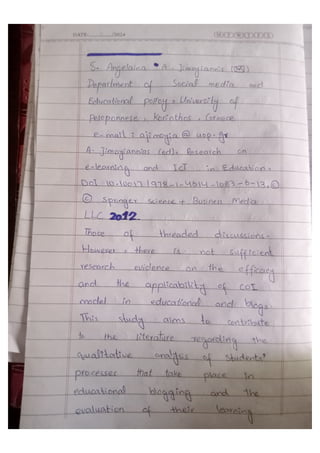 DATE
S. Angelaina • A. Jimoyiannis (✉)
Department of Social media and
Educational policy, University of
Peloponnese, Korinthos, Greece
e-mail: ajimoyia @ uop.gr
A. Jimoyiannis (ed), Research on
e-learning and ICT in Education,
DOI 10.1007/978-1-4614-1083-6-13, ©
© Springer science + Busines Media
LLC 2012.
Those of threaded discussions.
However, there is not sufficient
research evidence on the efficacy
and the applicability of COI
model in educational and blogs.
This study aims to contribute
to the literature regarding the
qualitative analysis of students'
processes that take place in
educational blogging and the
evaluation of their learning